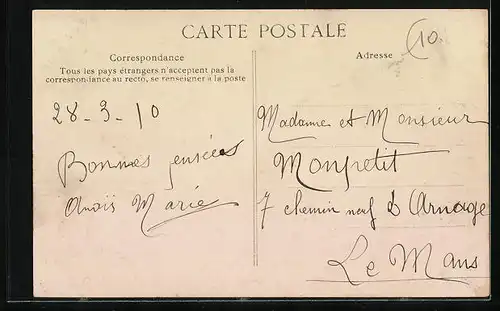 CARTE POSTALE
(10.
Correspondance
Tous les pays étrangers n'acceptent pas la
correspondance au recto, se renseigner à la poste
Adresse
28-3-10
Bonnes pensées
Anaïs Marie
Madame et Monsieur
Monpetit
7 chemin neuf d'Arnage
Le Mans